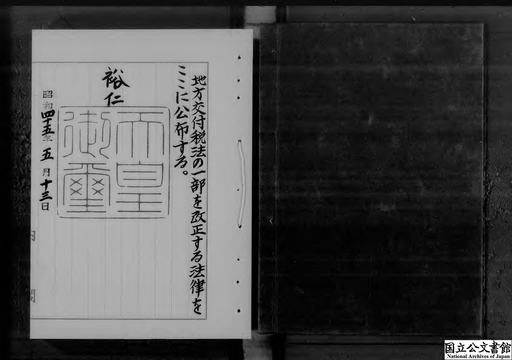 地方交付税法の一部を改正する法律を
ここに公布する。
裕仁
天皇
御璽
昭和四十五年五月十三日
内閣
国立公文書館
National Archives of Japan